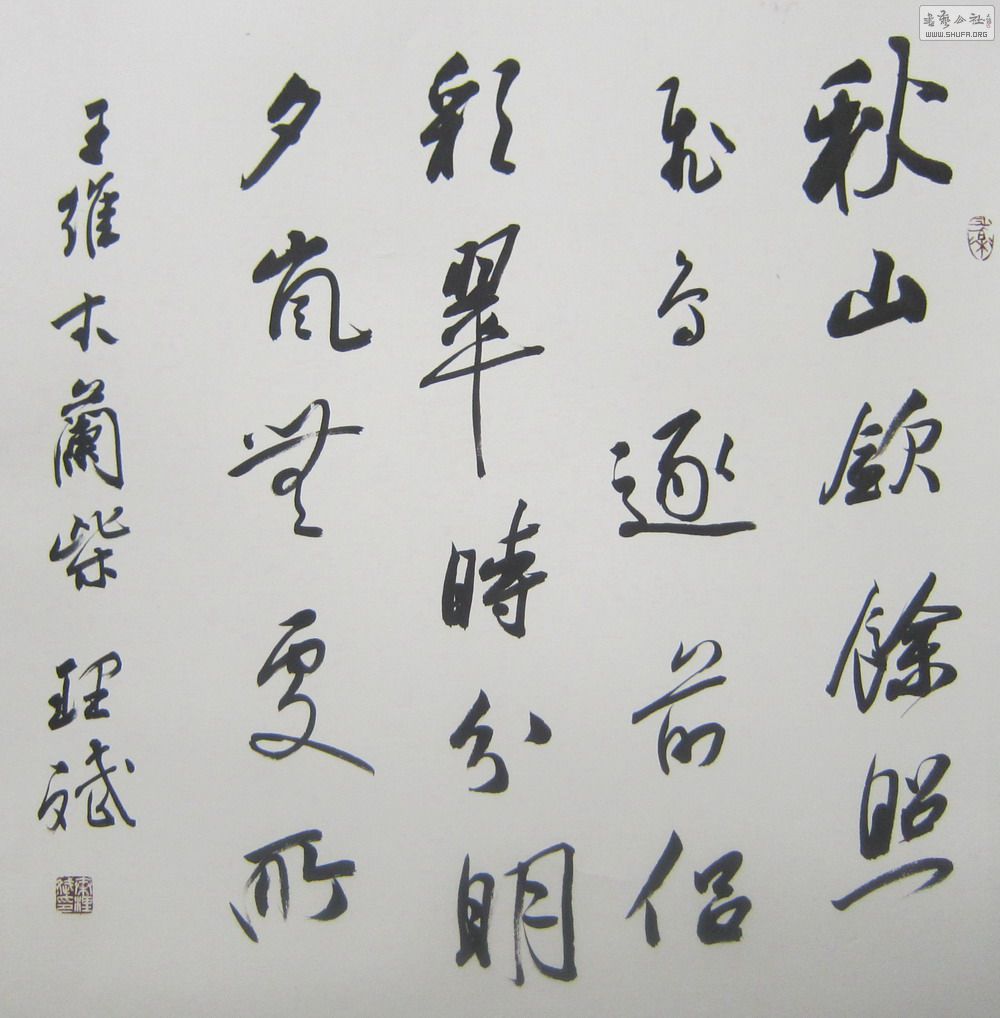 書藝公社
WWW.SHUFA.ORG
秋山歛餘照
飛鳥逐前侶
彩翠時分明
夕嵐無處所
王維木蘭柴 理斌